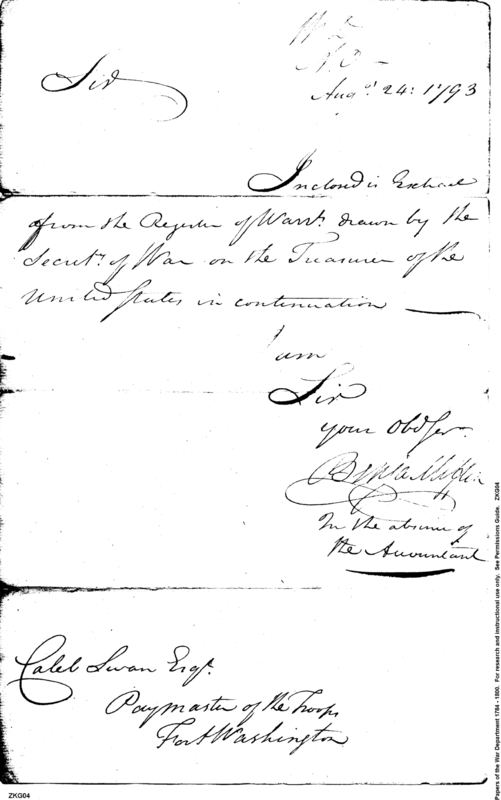 Sir
Augst 24: 1793
Inclosed is Extract
from the Register of Warrts. drawn by the
Secrety. of War on the Treasurer of the
United States in continuation
I am
Sir
your Obd Ser.
Benja Mifflin
In the absence of
the Accountant
Caleb Swan Esqr.
Paymaster of the Troops
Fort Washington
ZKG04
Papers of the War Department 1784 - 1800. For research and instructional use only. See Permissions Guide. ZKG04